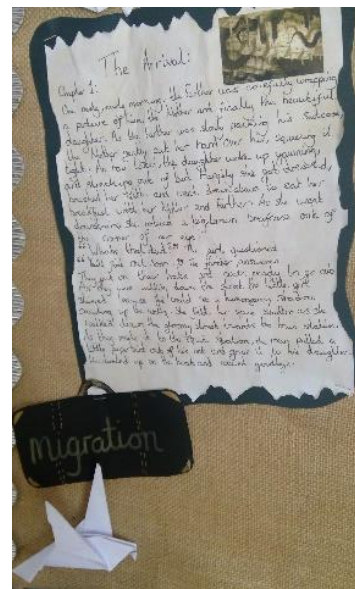 The Arrival:
Chapter 1:
One early, early morning, the Father was carefully wrapping
a picture of him, the Mother and finally the beautiful
daughter. As the Father was slowly packing his suitcase,
the Mother gently put her hand over his, squeezing it
tight. As now later, the daughter woke up yawning,
and stretching out of bed. Finally she got dressed,
brushed her teeth and went downstairs to eat her
breakfast with her Mother and Father. As she went
downstairs she noticed a suitcase out of
the corner of her eye.
"What's that dad?" the girl questioned
"You'll find out soon," the father answered
They put on their and got ready to go out.
As they were walking down the street the little girl
because she could see a shadow
up the walls. She held her as she
walked down the gloomy street towards the train station.
As they made it to the train station, the man pulled a
little paper bird out of his hat and gave it to his daughter.
He up on the train and waved goodbye.
Migration